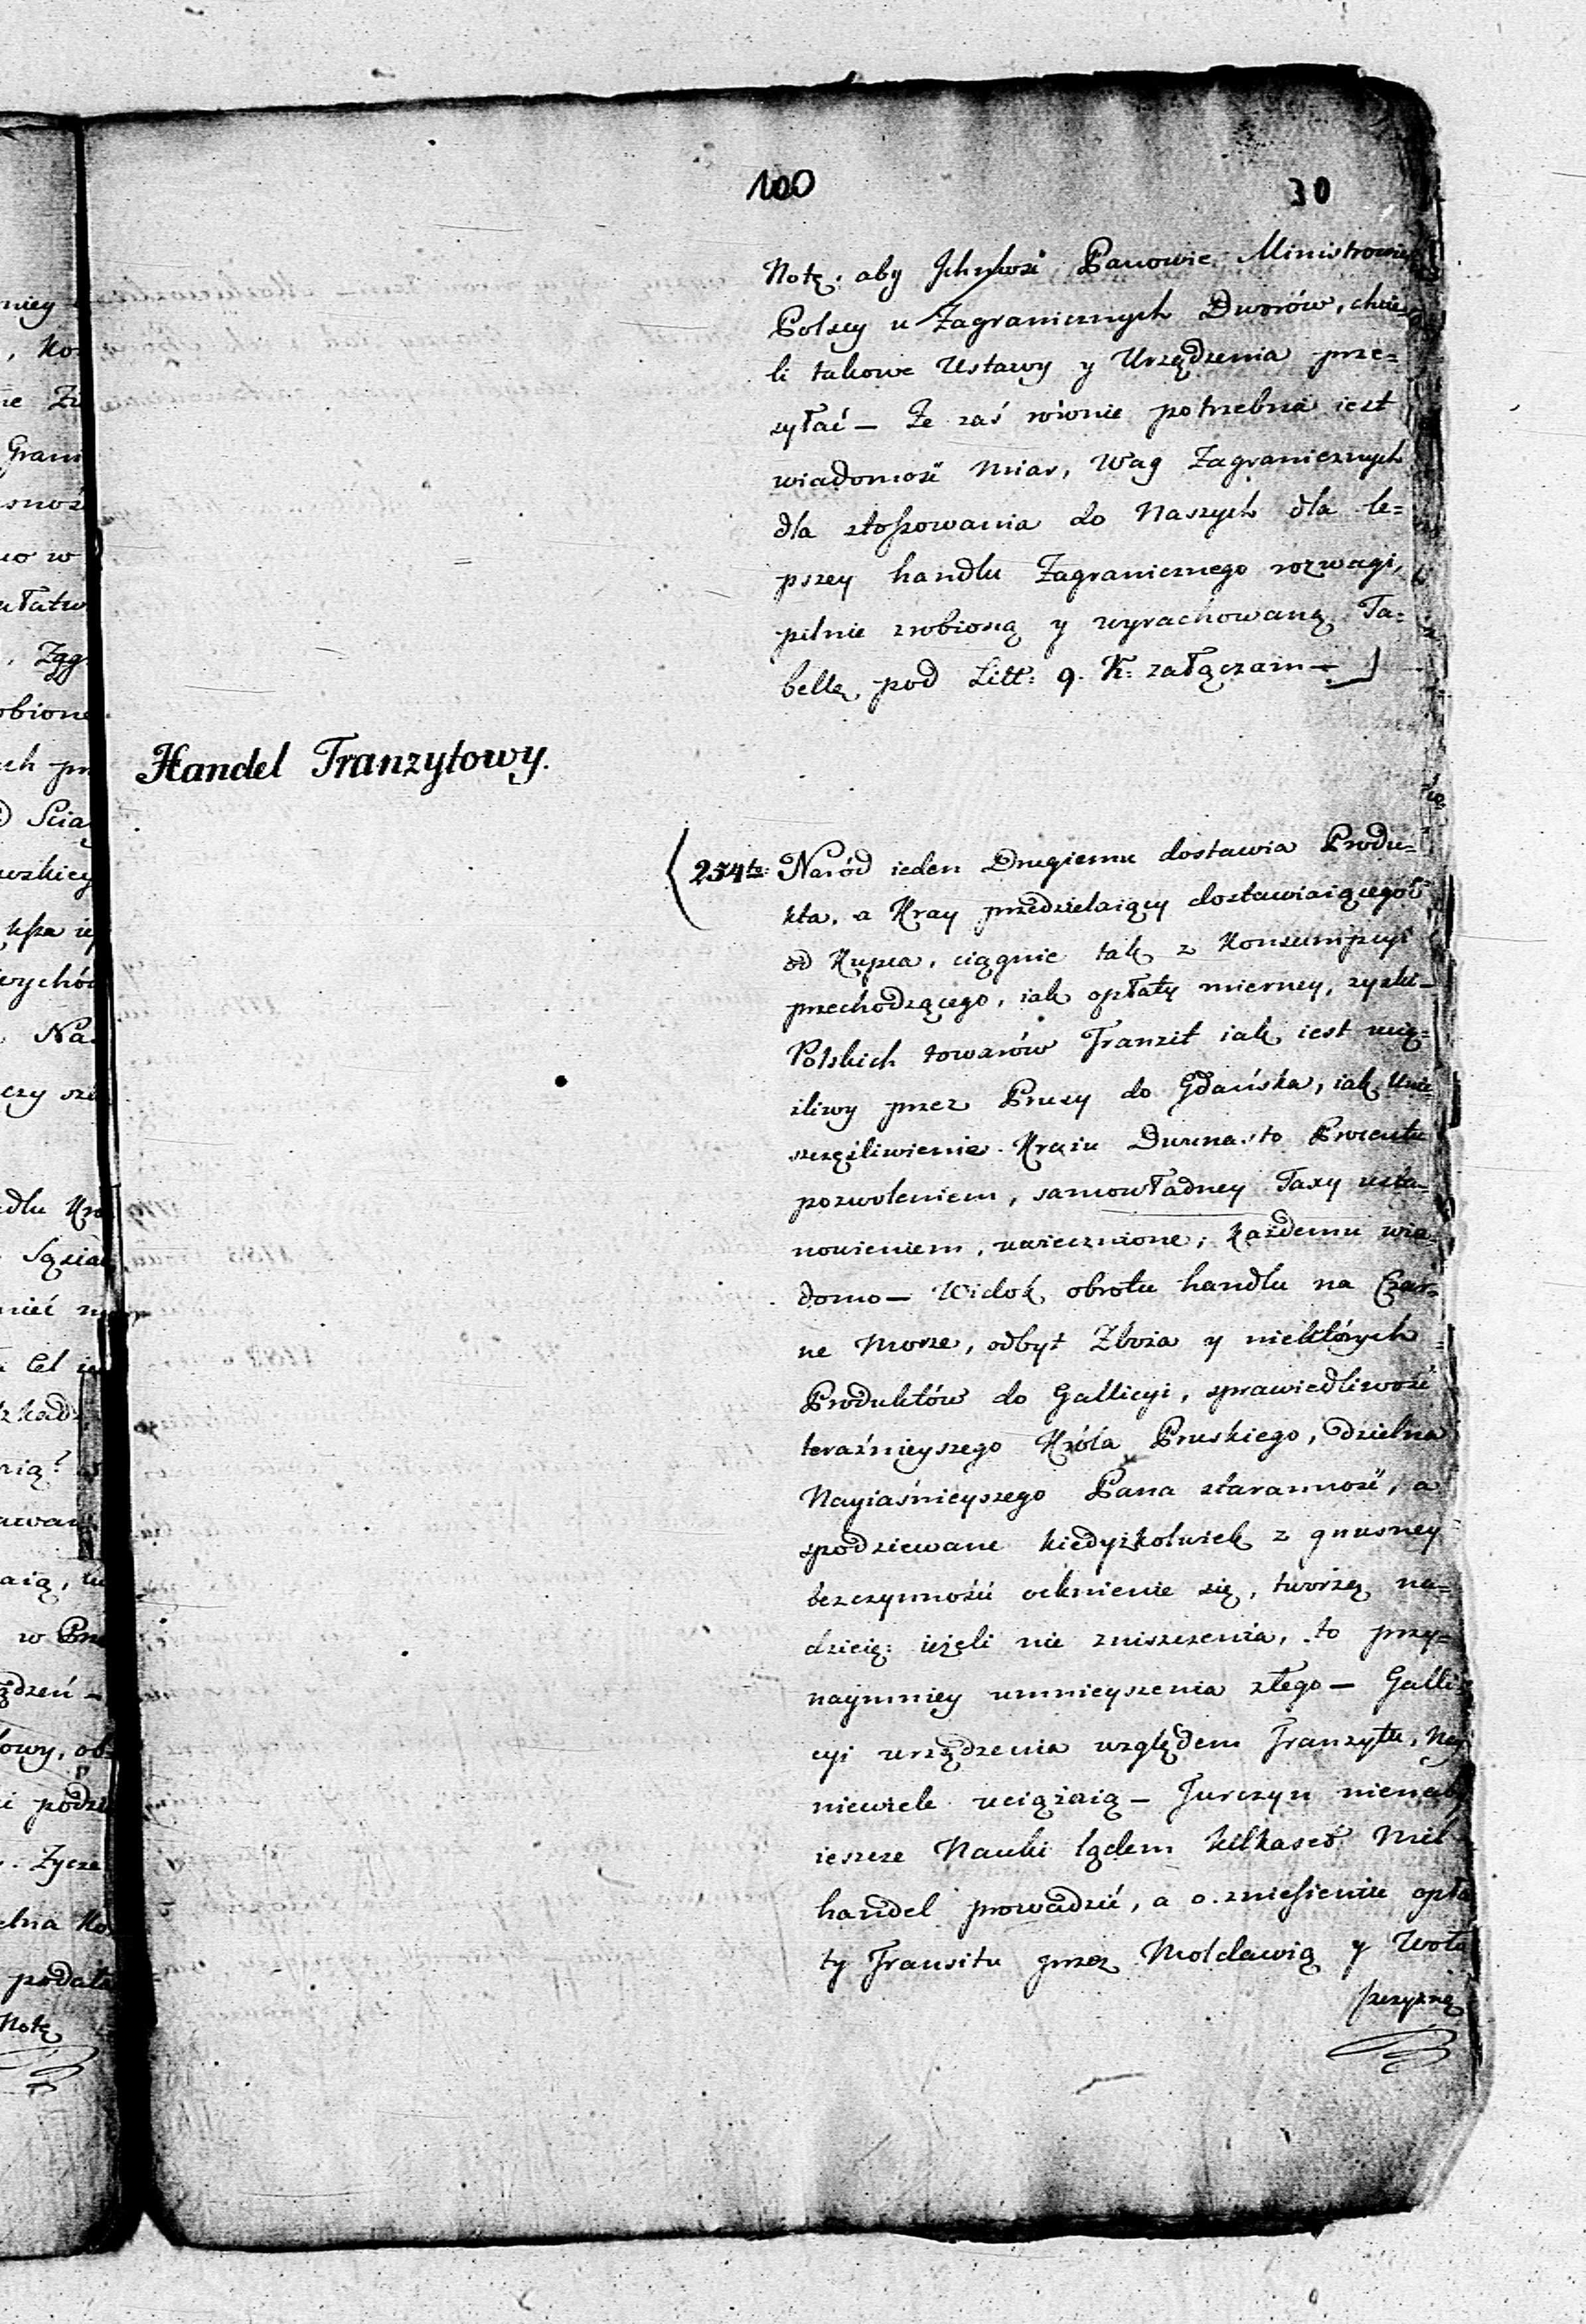 100
30
Notę: aby Ichmość Panowie Ministrowie
Polscy u Zagranicznych Dworów, chcie=
li takowe Ustawy y Urządzenia prze=
syłać — Ze zaś równie potrzebna iest
wiadomość Miar, Wag Zagranicznych
dla stosowania do Naszych dla le=
pszey handlu Zagranicznego rozwagi,
pilnie zrobioną y wyrachowaną Ta=
bellę pod Litt: 9. K: załączam —
Handel Tranzytowy.
254to: Naród ieden Drugiemu dostawia Produ=
kta, a Kray przedzielaiący dostawiaiącego
od Kupca, ciągnie tak z Konsumpcyi
przechodzącego, iak opłaty mierney, zyski —
Polskich towarów Tranzit iak iest ucią=
żliwy przez Prusy do Gdańska, iak Unie
szczęśliwienie Kraiu Dwunasto Procentu
pozwoleniem, samowładney Taxy usta=
nowieniem, uwiecznione, każdemu wia=
domo — Widok obrotu handlu na Czar=
ne Morze, odbyt Zboża y niektórych
Produktów do Gallicyi, sprawiedliwość
teraźnieyszego Króla Pruskiego, dzielna
Nayiaśnieyszego Pana staranność, a
spodziewane kiedyżkolwiek z gnusney
bezczynności ocknienie się, tworzą na=
dzieię: ieżeli nie zniszczenia, to przy=
naymniey umnieyszenia złego — Galli=
cyi urządzenia względem Tranzytu,
niewiele uciążaią — Turczyn
ieszcze Nauki lądem kilkaset Mil
handel prowadzić, a o zniesienie opła
ty Transitu przez Mołdawią y Woło
szczyznę
niey
Gran
Na
w Pru
Zycze
podatk
Notę